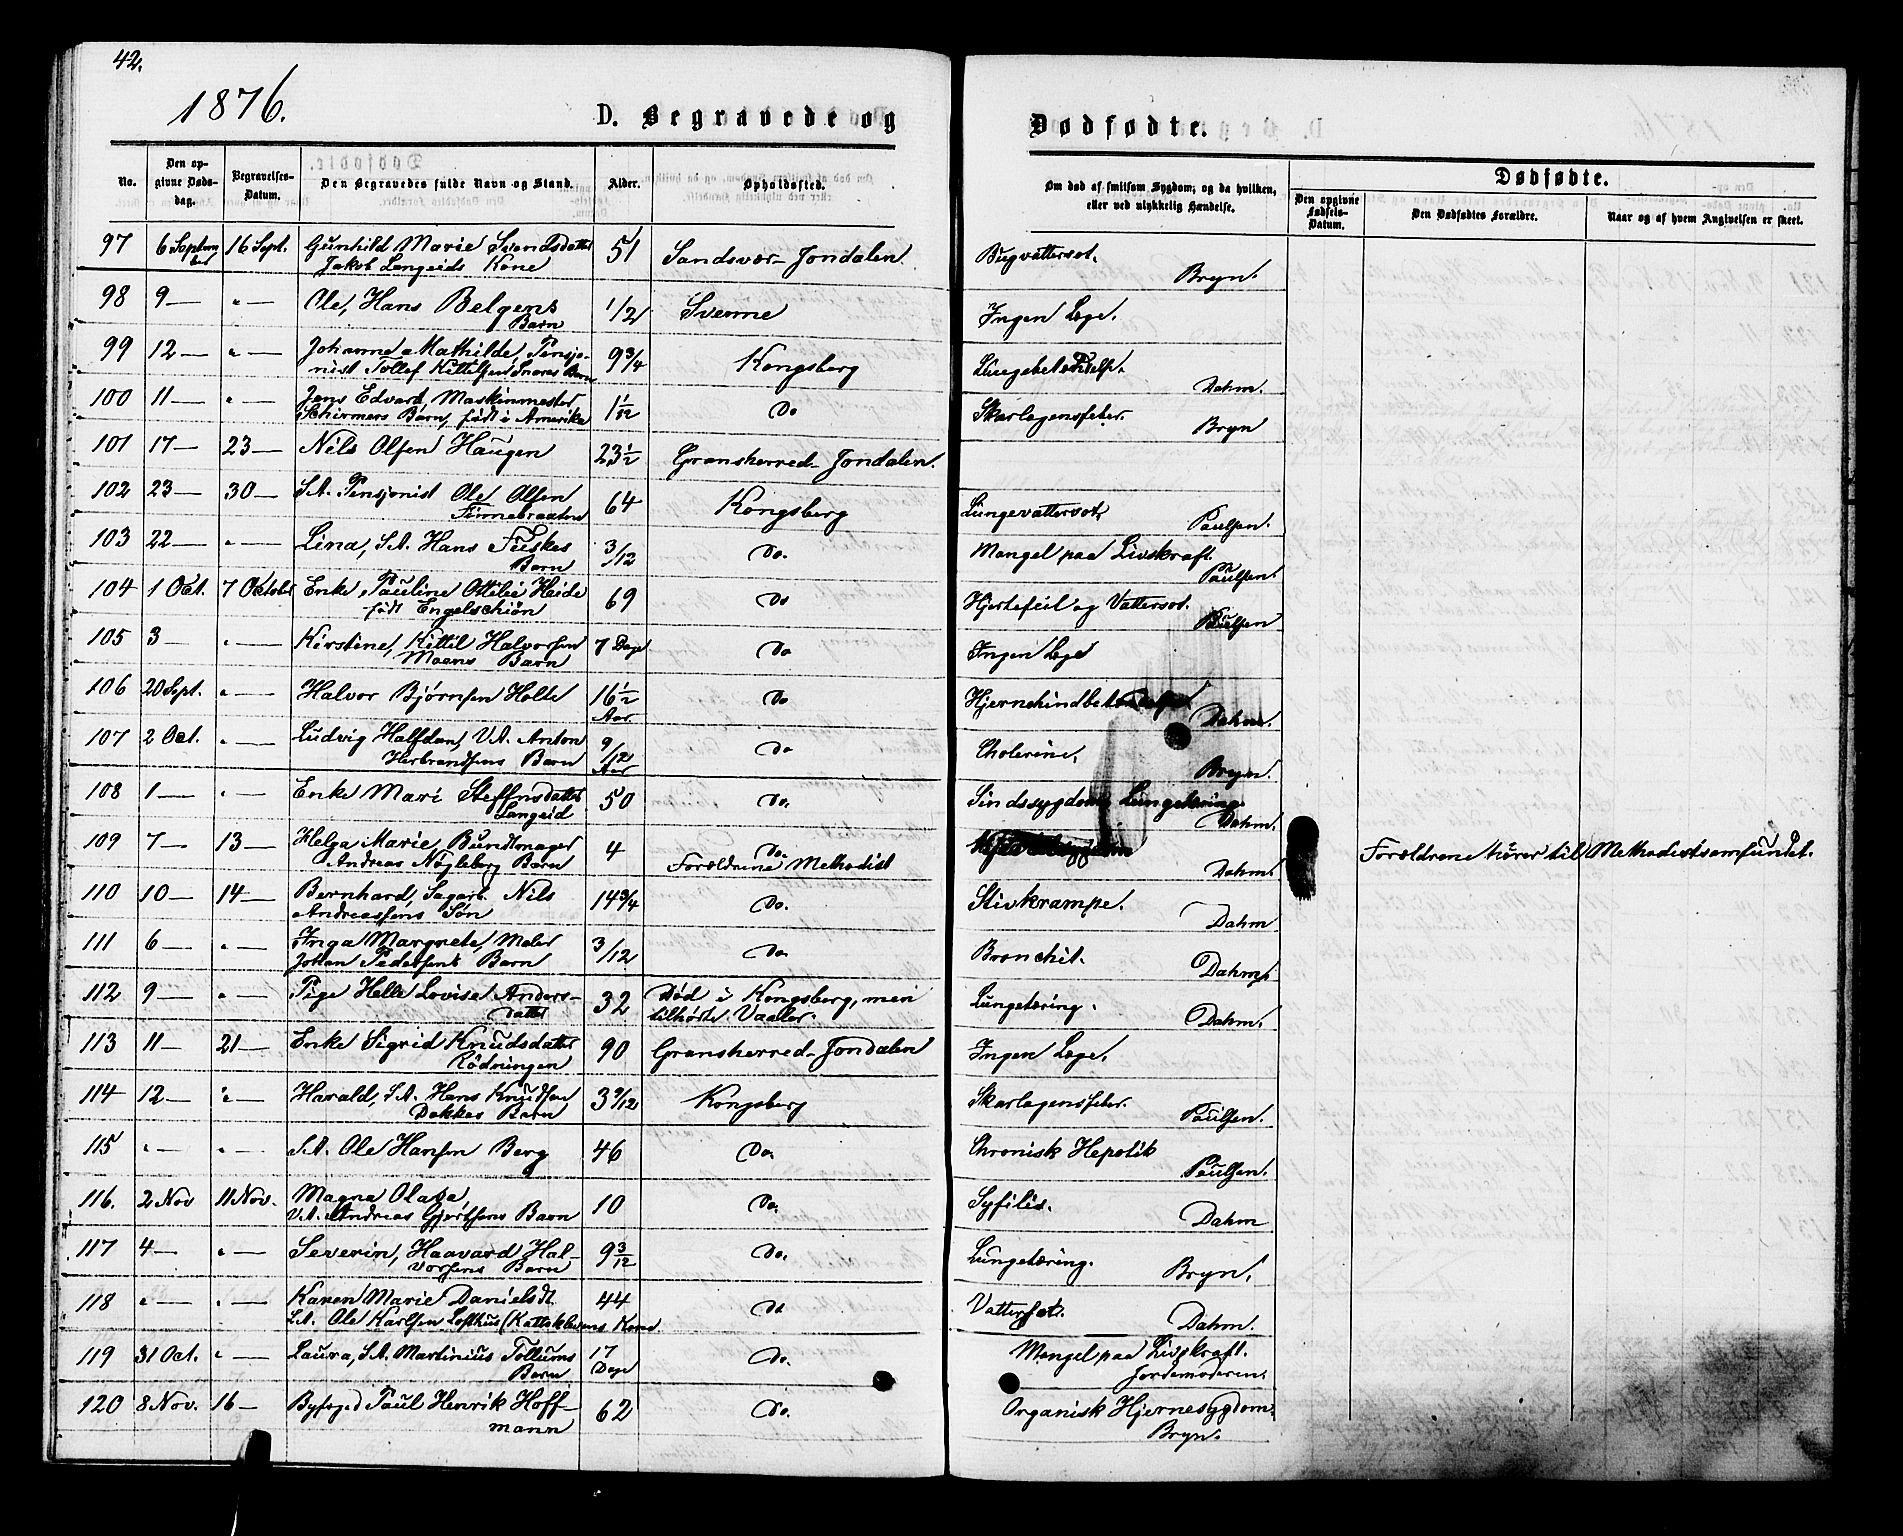 42.
1876.
D. Begravede og
Dødfødte.
No.
Den op-
givne Døds-
dag.
Begravelses-
Datum.
Den Begravedes fulde Navn og Stand.
Alder.
Opholdssted.
Om død af smitsom Sygdom; og da hvilken,
eller ved ulykkelig Hændelse.
Dødfødte.
Den opgivne
Fødsels-
Datum.
Den Dødfødtes Forældre.
Naar og af hvem Angivelsen er skeet.
97 6 Septem 16 Sept. Gunhild Marie Svendsdatter 51 Sandsvær-Jondalen. Bugvattersot.
ber Jakob Langeids Kone Bryn.
98 9 — „ — Ole, Hans Belgens 1/2 Svenne Ingen Læge.
Barn
99 12 — „ — Johanne Mathilde, Pensjo- 9 3/4 Kongsberg Lungebetændelse.
nist Tollef Kittilsen Barn Dahm.
100 11 — „ — Jens Edvard, Maskinmester 1 1/12 Do Skarlagensfeber.
Schirmers Barn, født i Amerika Bryn
101 17 — 23 — Nils Olsen Haugen 23 1/2 Gransherred-Jondalen.
102 23 — 30 — S.A. Pensjonist Ole Olsen 64 Kongsberg Lungevattersot,
Finnebraaten Paulsen.
103 22 — „ — Lina, S.A. Hans Fiskes 3/12 Do. Mangel paa Livskraft.
Barn Paulsen.
104 1 Oct. 7 October Enke Pauline Ottilie Heide 69 Do Hjertefeil og Vattersot.
født Engelschiøn Paulsen
105 3 — „ — Kirstine, Kittil Halvorsen 7 Dage Do Ingen Læge
Moens Barn
106 20 Sept. „ — Halvor Bjørnsen Holte 16 1/2 Do Hjernehindbetændelse
Aar Dahm.
107 2 Oct. „ — Ludvig Halfdan, V.A. Anton 9/12 Do Cholerine,
Herbrandsens Barn Aar Bryn.
108 1 — „ — Enke Mari Steffensdatter 50 Do. Sindssygdom, Lungetæring.
Langeid Dahm.
109 7 — 13 — Helga Marie, Bundtmager 4 Do.
Andreas Nøgleberg Barn Forældrene Methodist Dahm. Forældrene hører til Methodistsamfundet.
110 10 — 14 — Bernhard, Sagarb. Nils 14 3/4 Do. Stivkrampe.
Andreassens Søn Dahm
111 6 — „ — Inga Margrete, Maler 3/12 Do. Bronchit.
Johan Pedersens Barn Dahm,
112 9 — „ — Pige Helle Lovise Anders- 32 Død i Kongsberg, men Lungetæring.
datter tilhørte Vaaler. Dahm.
113 11 — 21 — Enke Sigrid Knudsdatter 90 Gransherred-Jondalen Ingen Læge.
Rødningen
114 12 — „ — Harald, S.A. Hans Knudsen 3 9/12 Kongsberg Skarlagensfeber.
Dokkas Barn Paulsen.
115 „ — „ — S.A. Ole Hansen Berg 46 Do. Chronisk Hepatik
Paulsen.
116. 2 Nov 11 Nov. Magna Olava, 10 Do. Syfilis.
V.A. Andreas Gjertsens Barn Dahm
117 4 — „ — Severin, Haavard Hal- 9 3/12 Do. Lungetæring.
vorsens Barn Bryn.
118 „ — „ — Karen Marie Danielsdt. 44 Do Vattersot.
S.A. Ole Karlsen Lofthus (Katteklevens Kone. Dahm.
119 31 Oct. „ — Laura, S.A. Martinius Tollums 17 Do. Mangel paa Livskraft.
Barn Dage Jordemoderen.
120 8 Nov. 16 — Byfoged Paul Henrik Hoff- 62 Do. Organisk Hjernesygdom.
mann Bryn.